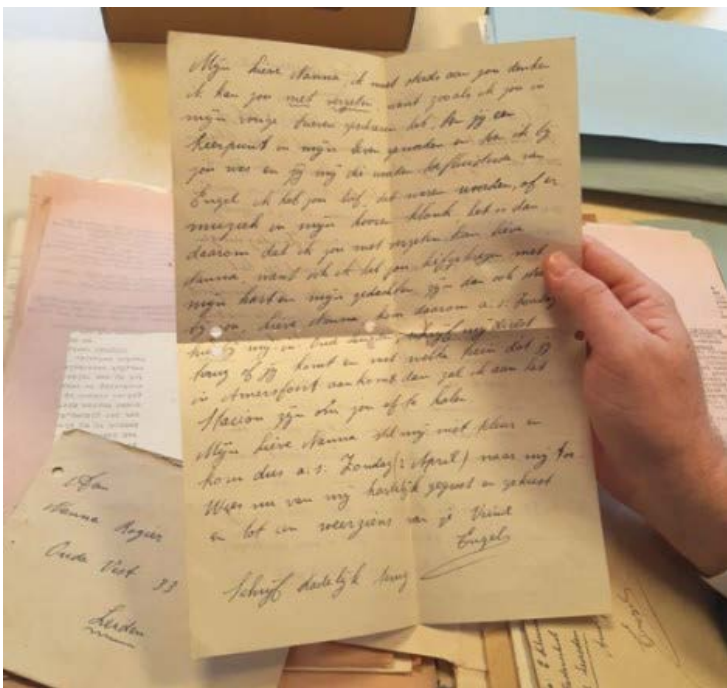 Mijn lieve Nanna, ik moet steeds aan jou denken
ik kan jou niet vergeten want zooals ik jou in
mijn vorige brieven geschreven heb, ben jij een
keerpunt in mijn leven geworden en toen ik bij
jou was en jij mij die woorden toefluisterde van
Engel ik heb jou lief, dat waren woorden, of er
muziek in mijn ooren klonk het is dan
daarom dat ik jou niet vergeten kan lieve
Nanna want ook ik heb jou lief gekregen met
mijn hart en mijn gedachten zijn dan ook steeds
bij jou, lieve Nanna kom daarom a.s. Zondag
bij mij in Oud schrijf mij direct
terug of jij komt en met welke trein dat jij
in Amersfoort aankomt dan zal ik aan het
Station zijn om jou af te halen
Mijn lieve Nanna stel mij niet teleur en
kom dus a.s. Zondag (2 April) naar mij toe.
Wees nu van mij hartelijk gegroet en gekust
en tot een weerziens van je Vriend
Engel
Schrijf dadelijk terug
Aan
Nanna Rogier
Oude Vest 33
Leiden
Engel